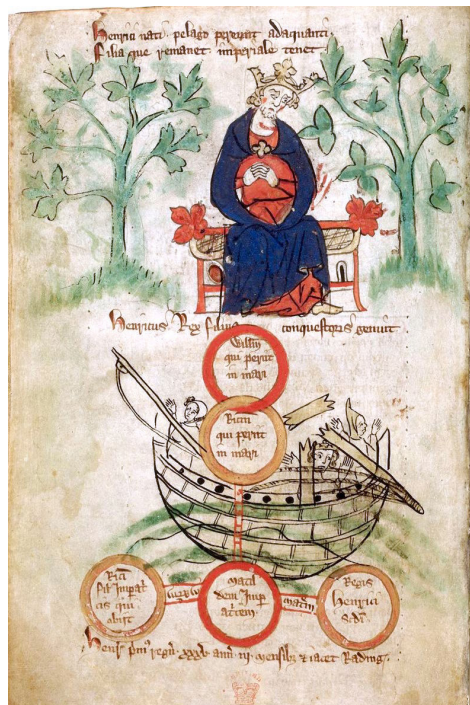 Henrici nati pelago perierunt adaquati
Filia que remanet imperiale tenet
Henricus Rex filius conquestoris genuit
Willm
qui periit
in mari
Ricm
qui periit
in mari
qui
obiit
Matil
dem Imp
atricem
Regis
Henrici
Scdi
regn xxxv ann iii mensibz &amp; iacet Rading